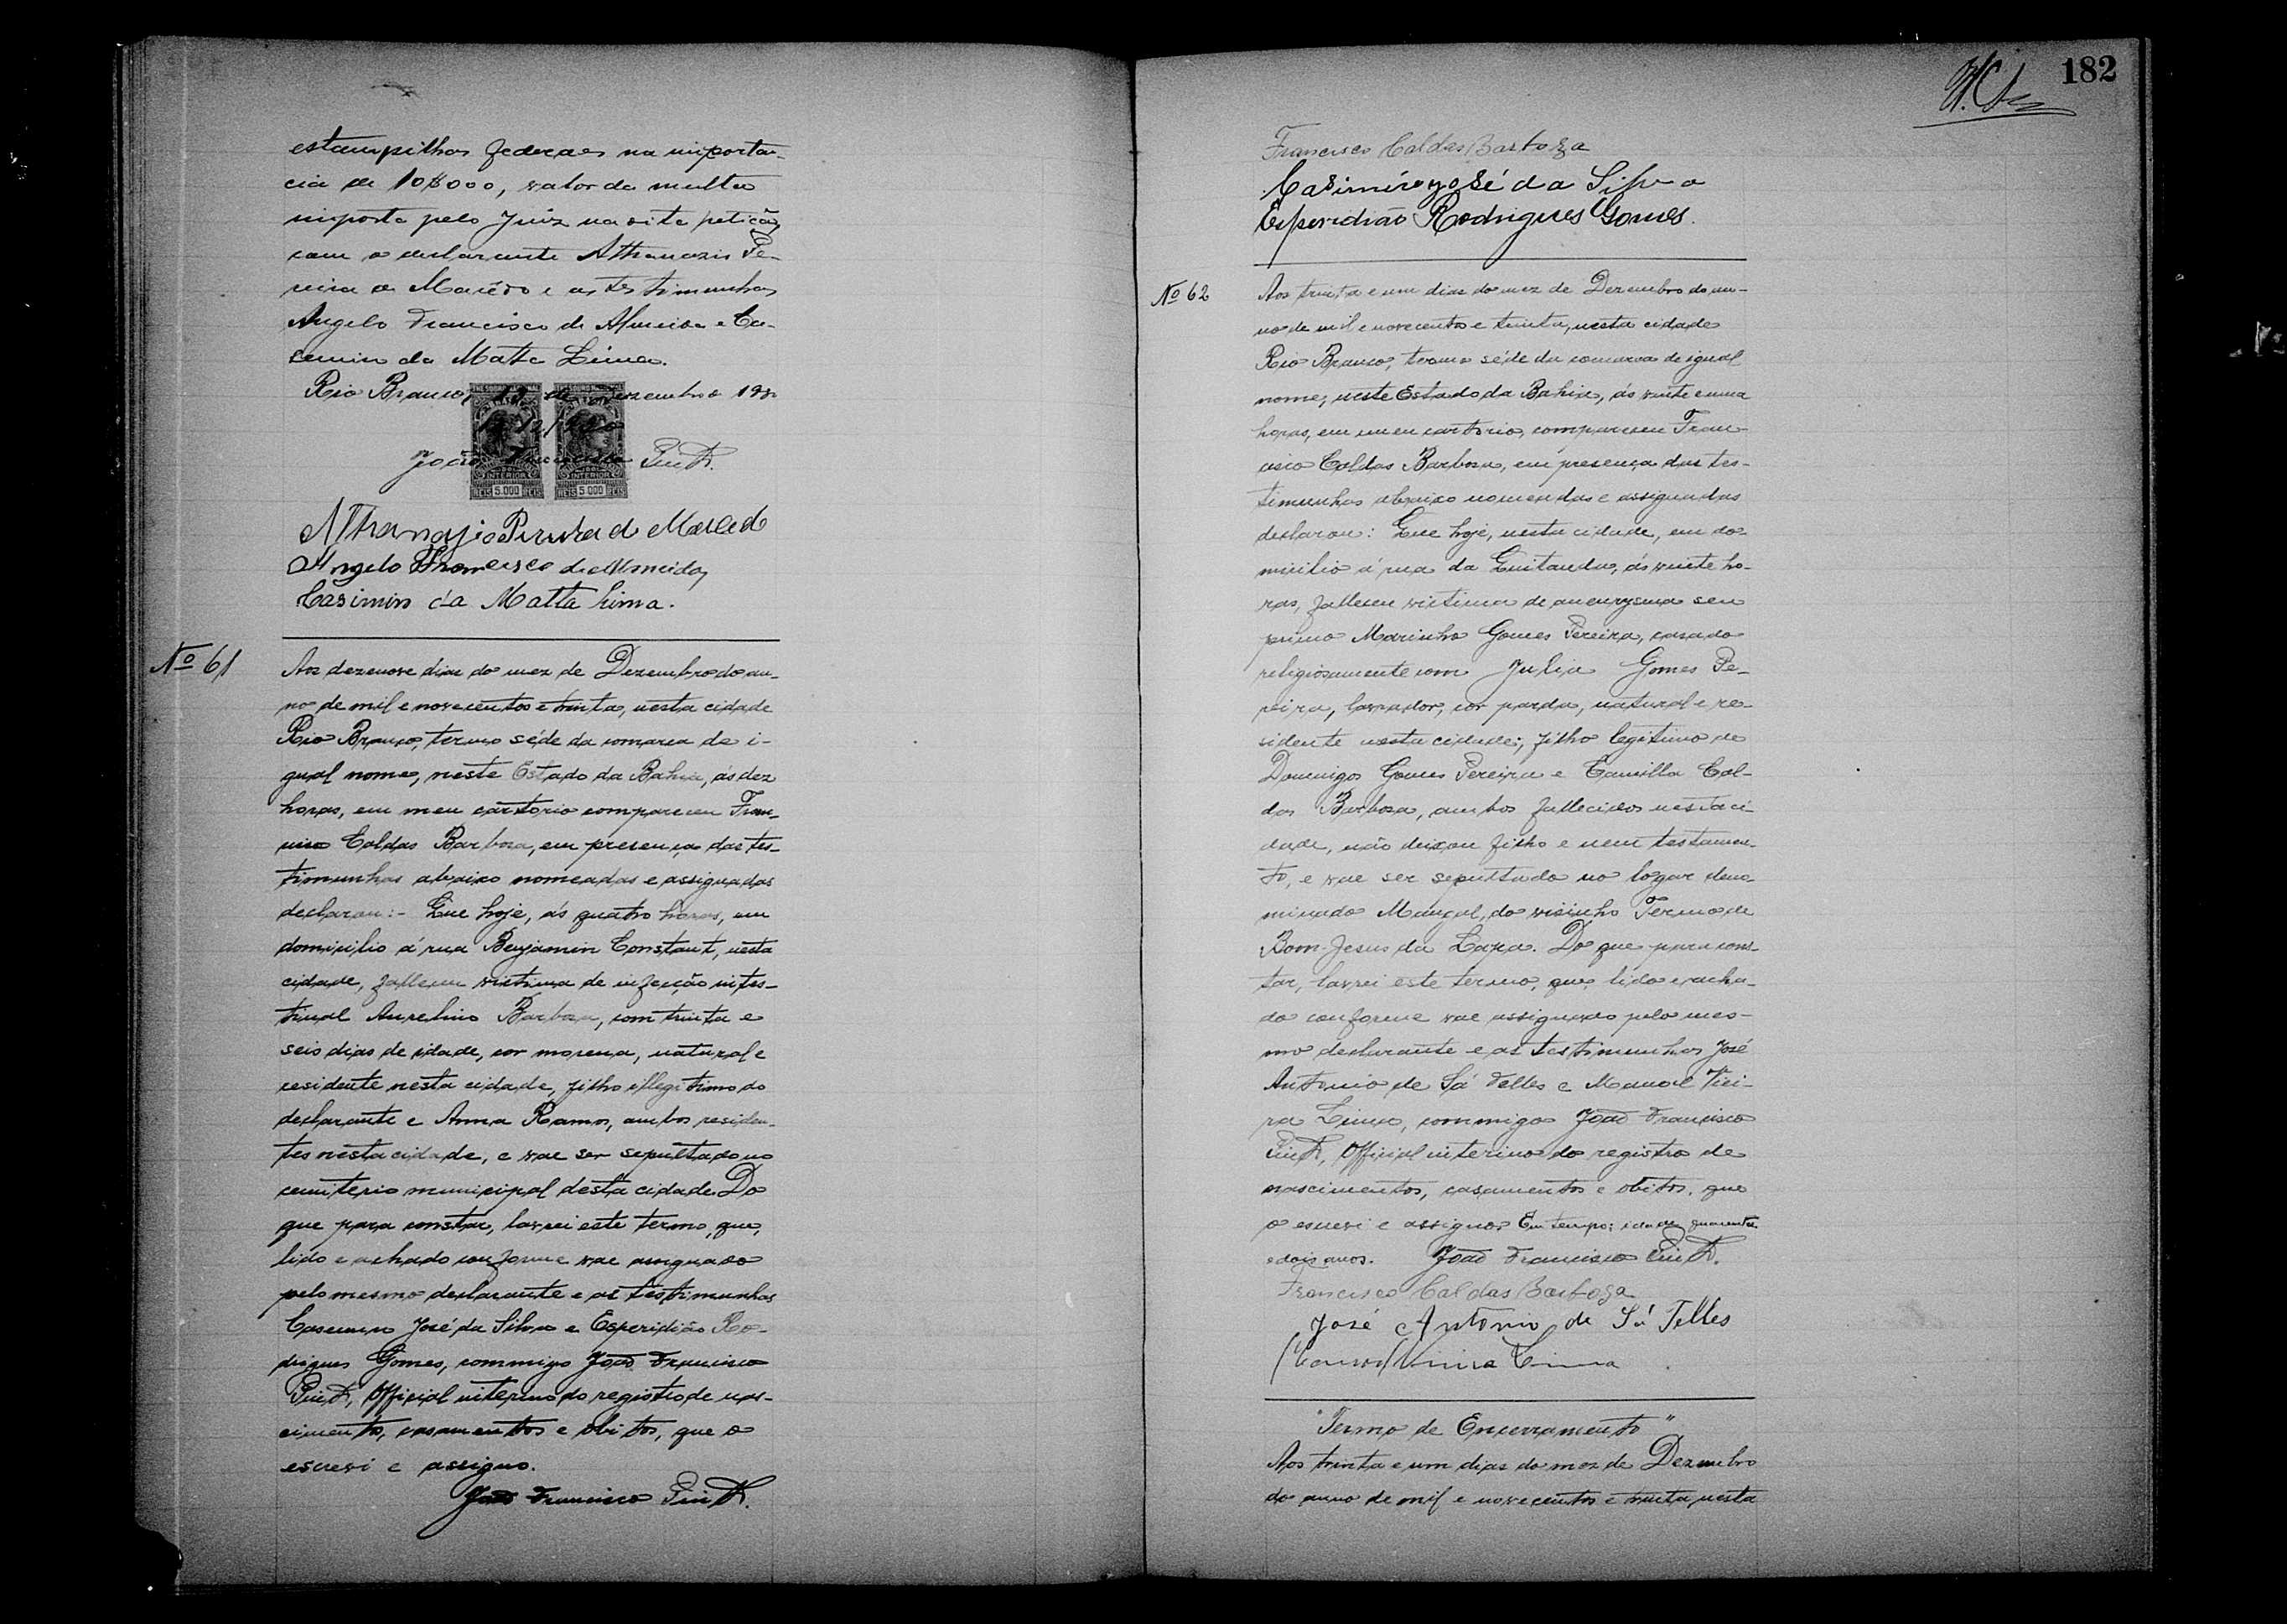 estampilhas federaes na importan-
cia de 10$000, valor da multa
imposta pelo Juiz na dita petição,
com o declarante Athanazio Pe-
reira de Macêdo e as testimunhas
Angelo Francisco de Almeida e Ca-
semiro da Matta Lima.
Rio Branco, 19 de Dezembro 1930
THESOURO NACIONAL
João Francisco Pinto.
INTERIOR
REIS 5.000 REIS REIS 5000 REIS
Athanazio Pereira de Macedo
Angelo Francisco de Almeida,
Casimiro da Matta Lima.
Nº 61
Aos dezenove dias do mez de Dezembro do an-
no de mil e novecentos e trinta, nesta cidade
Rio Branco, termo séde da comarca de i-
gual nome, neste Estado da Bahia, ás dez
horas, em meu cartorio compareceu Fran-
cisco Caldas Barbosa, em presença das tes-
timunhas abaixo nomeadas e assignadas
declarou:- Que hoje, ás quatro horas, em
domicilio á rua Benjamin Constant, nesta
cidade, falleceu victima de infecção intes-
tinal Aurelino Barbosa, com trinta e
seis dias de idade, cor morena, natural e
residente nesta cidade, filho illegitimo do
declarante e Anna Ramos, ambos residen-
tes nesta cidade, e vae ser sepultado no
cemiterio municipal desta cidade. Do
que para constar, lavrei este termo, que,
lido e achado conforme vae assignado
pelo mesmo declarante e as testimunhas
Casemiro José da Silva e Esperidião Ro-
drigues Gomes, commigo João Francisco
Pinto, Official interino do registro de nas-
cimentos, casamentos e obitos, que o
escrevi e assigno.
João Francisco Pinto.
182
Francisco Caldas Barboza
Casimiro José da Silva
Esperidião Rodrigues Gomes.
Nº 62
Aos trinta e um dias do mez de Dezembro do an-
no de mil e novecentos e trinta, nesta cidade
Rio Branco, termo séde da comarca de igual
nome, neste Estado da Bahia, ás vinte e uma
horas, em meu cartorio, compareceu Fran-
cisco Caldas Barbosa, em presença das tes-
timunhas abaixo nomeadas e assignadas
declarou: Que hoje, nesta cidade, em do-
micilio á rua da Quitanda, ás vinte ho-
ras, falleceu victima de aneurysma seu
primo Marinho Gomes Pereira, casado
religiosamente com Julia Gomes Pe-
reira, lavrador, cor parda, natural e re-
sidente nesta cidade, filho legitimo de
Domingos Gomes Pereira e Camilla Cal-
das Barbosa, ambos fallecidos nesta ci-
dade, não deixou filho e nem testamen-
to, e vae ser sepultado no logar deno-
minado Mangal, do visinho Termo de
Bom Jesus da Lapa. Do que para cons-
tar, lavrei este termo, que, lido e acha-
do conforme vae assignado pelo mes-
mo declarante e as testimunhas José
Antonio de Sá Telles e Manoel Viei-
ra Lima, commigo João Francisco
Pinto, Official interino do registro de
nascimentos, casamentos e obitos, que
o escrevi e assigno. Em tempo: idade quarenta
e dois anos. João Francisco Pinto.
Francisco Caldas Barboza
José Antonio de Sá Telles
Manoel Vieira Lima
"Termo de Encerramento"
Aos trinta e um dias do mez de Dezembro
do anno de mil e novecentos e trinta, nesta